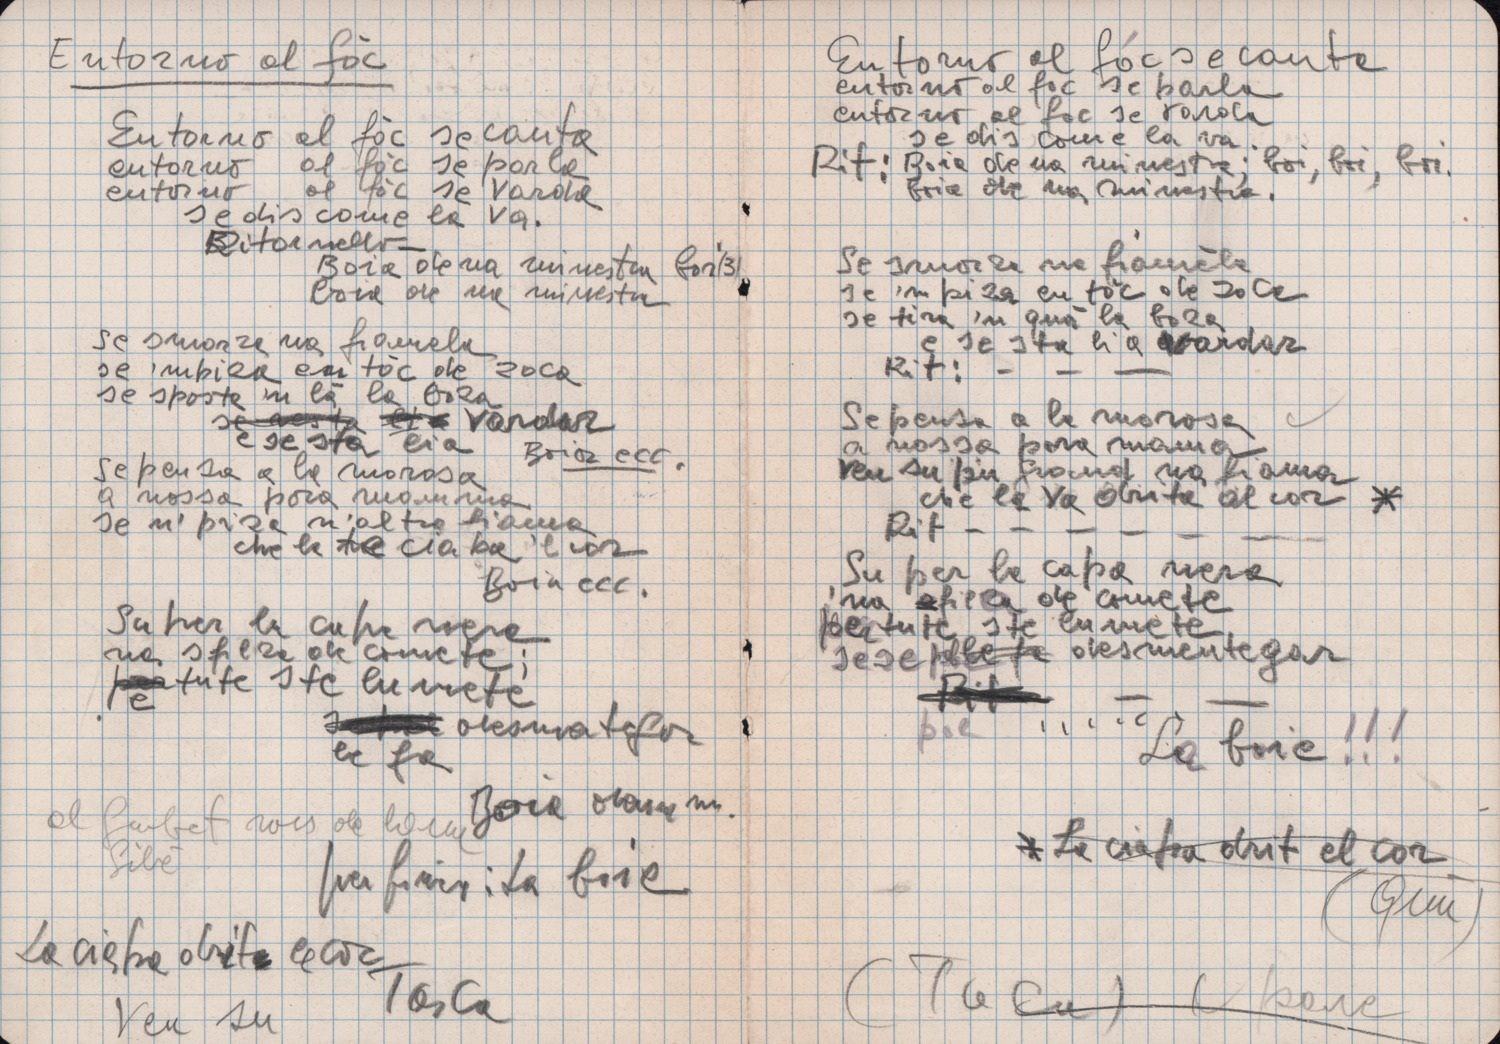 Entorno al fòc
Entorno al fòc se canta
entorno al fòc se parla
entorno al fòc se varda
se dis come la va.
Ritornello —
Boia de na minestra boi (3)
boia de na minestra
se smorza na fiamela
se 'mpiza en tòc de zoca
se sposta 'n là la boza
Vardar
e se sta lia
Boia ecc.
se pensa a la morosa
a nossa pora mamma
se n'piza n'altra fiama
che la te ciapa 'l cor
Boia ecc.
Su per la capa nera
na sfilza de comete;
tute ste lumete
desmentegar
le fa
Boia
al de
per finir: la boie
La ciapa drita el cor
Tasca
Ven su
Entorno al fóc se canta
entorno al fóc se parla
entorno al foc se varda
se dis come la va.
Rit: Boia de na minestra; boi, boi, boi.
boia de na minestra.
Se smorza na fiamèla
se 'mpiza en tòc de zoca
se tira 'n quà la boza
e se sta li a vardar
Rit: - - —
Se pensa a la morosa
a nossa pora mama
Ven su pu grand na fiama
che la va drita al cor *
Rit - - - - - —
Su per la capa nera
'na sfilza de comete
per tute ste lumete
se se desmentegar
Rit — —
La boie!!!
* La ciapa drit el cor